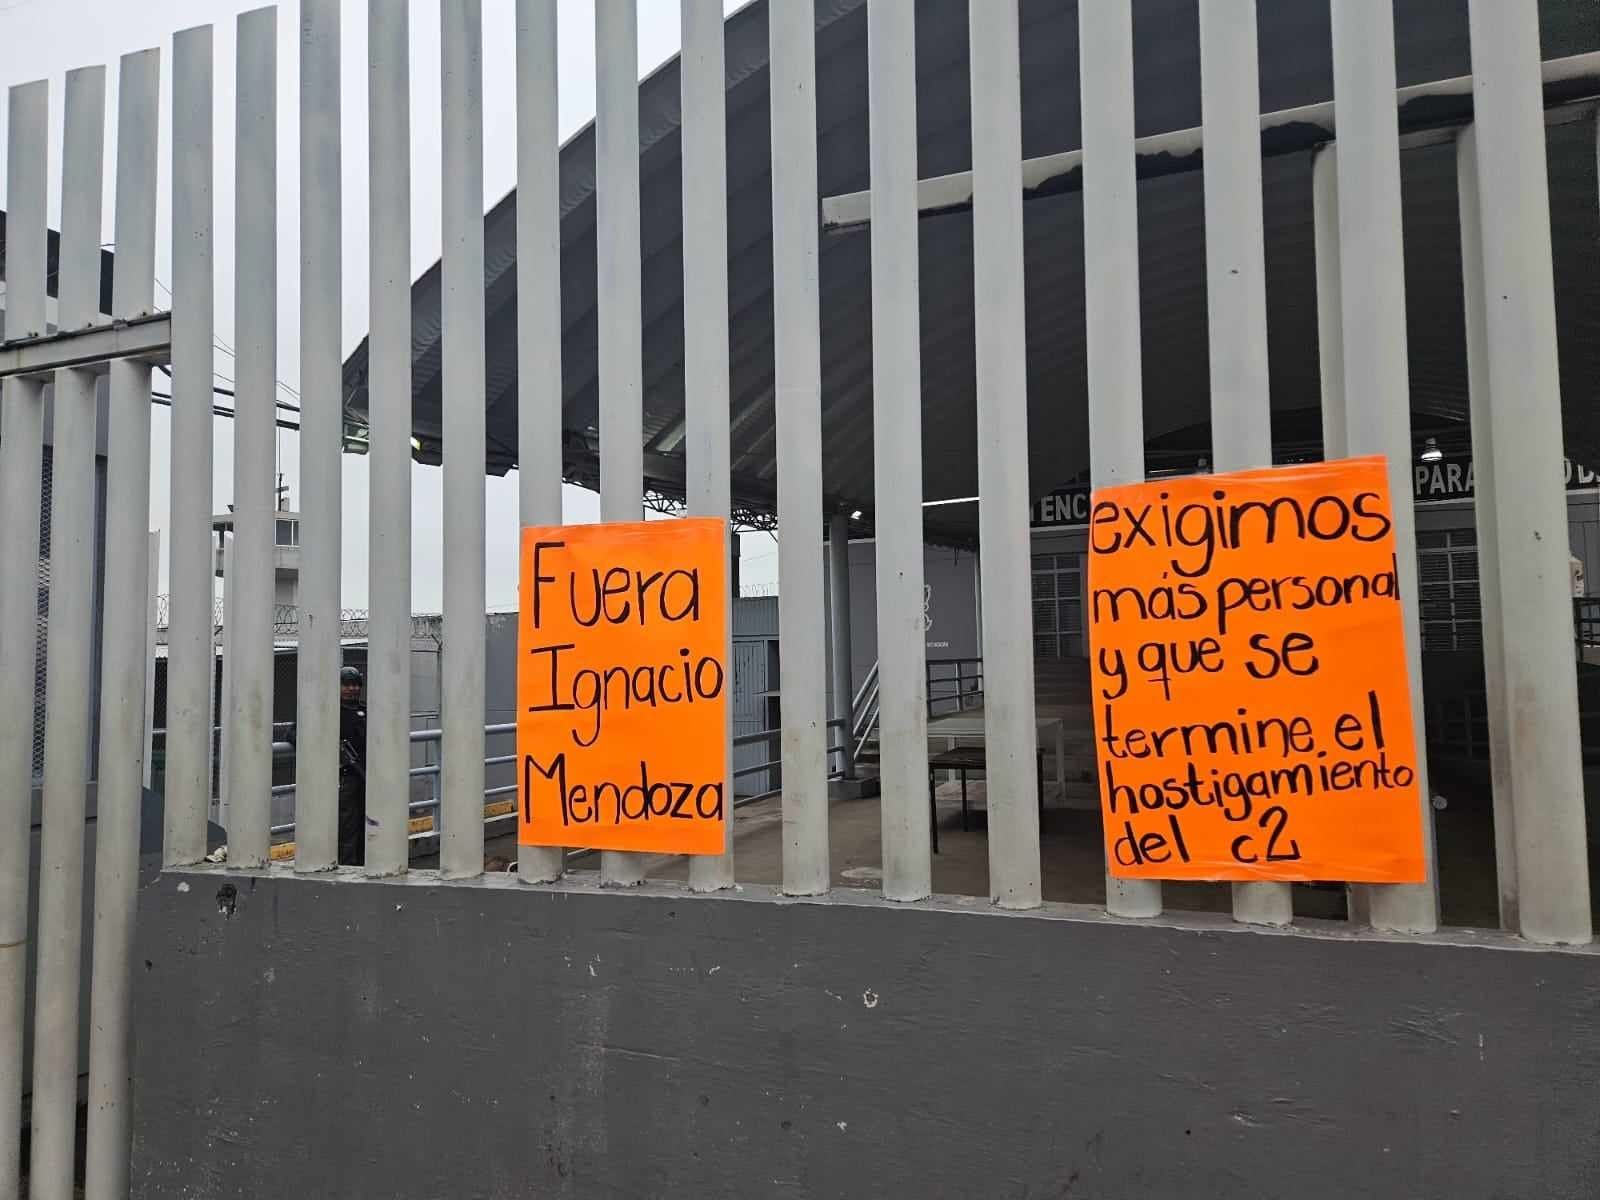 Fuera
Ignacio
Mendoza
exigimos
más personal
y que se
termine el
hostigamiento
del c2
ENC
PARA